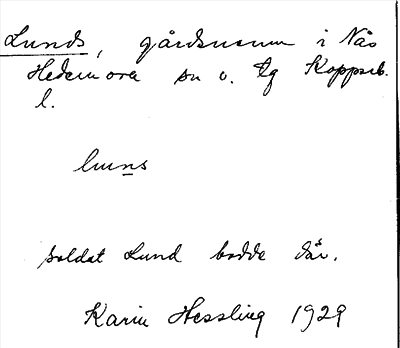 Lunds, gårdsnamn i Näs
Hedemora sn o. tg Kopparb.
l.
luns
soldat Lund bodde där.
Karin Hessling 1929